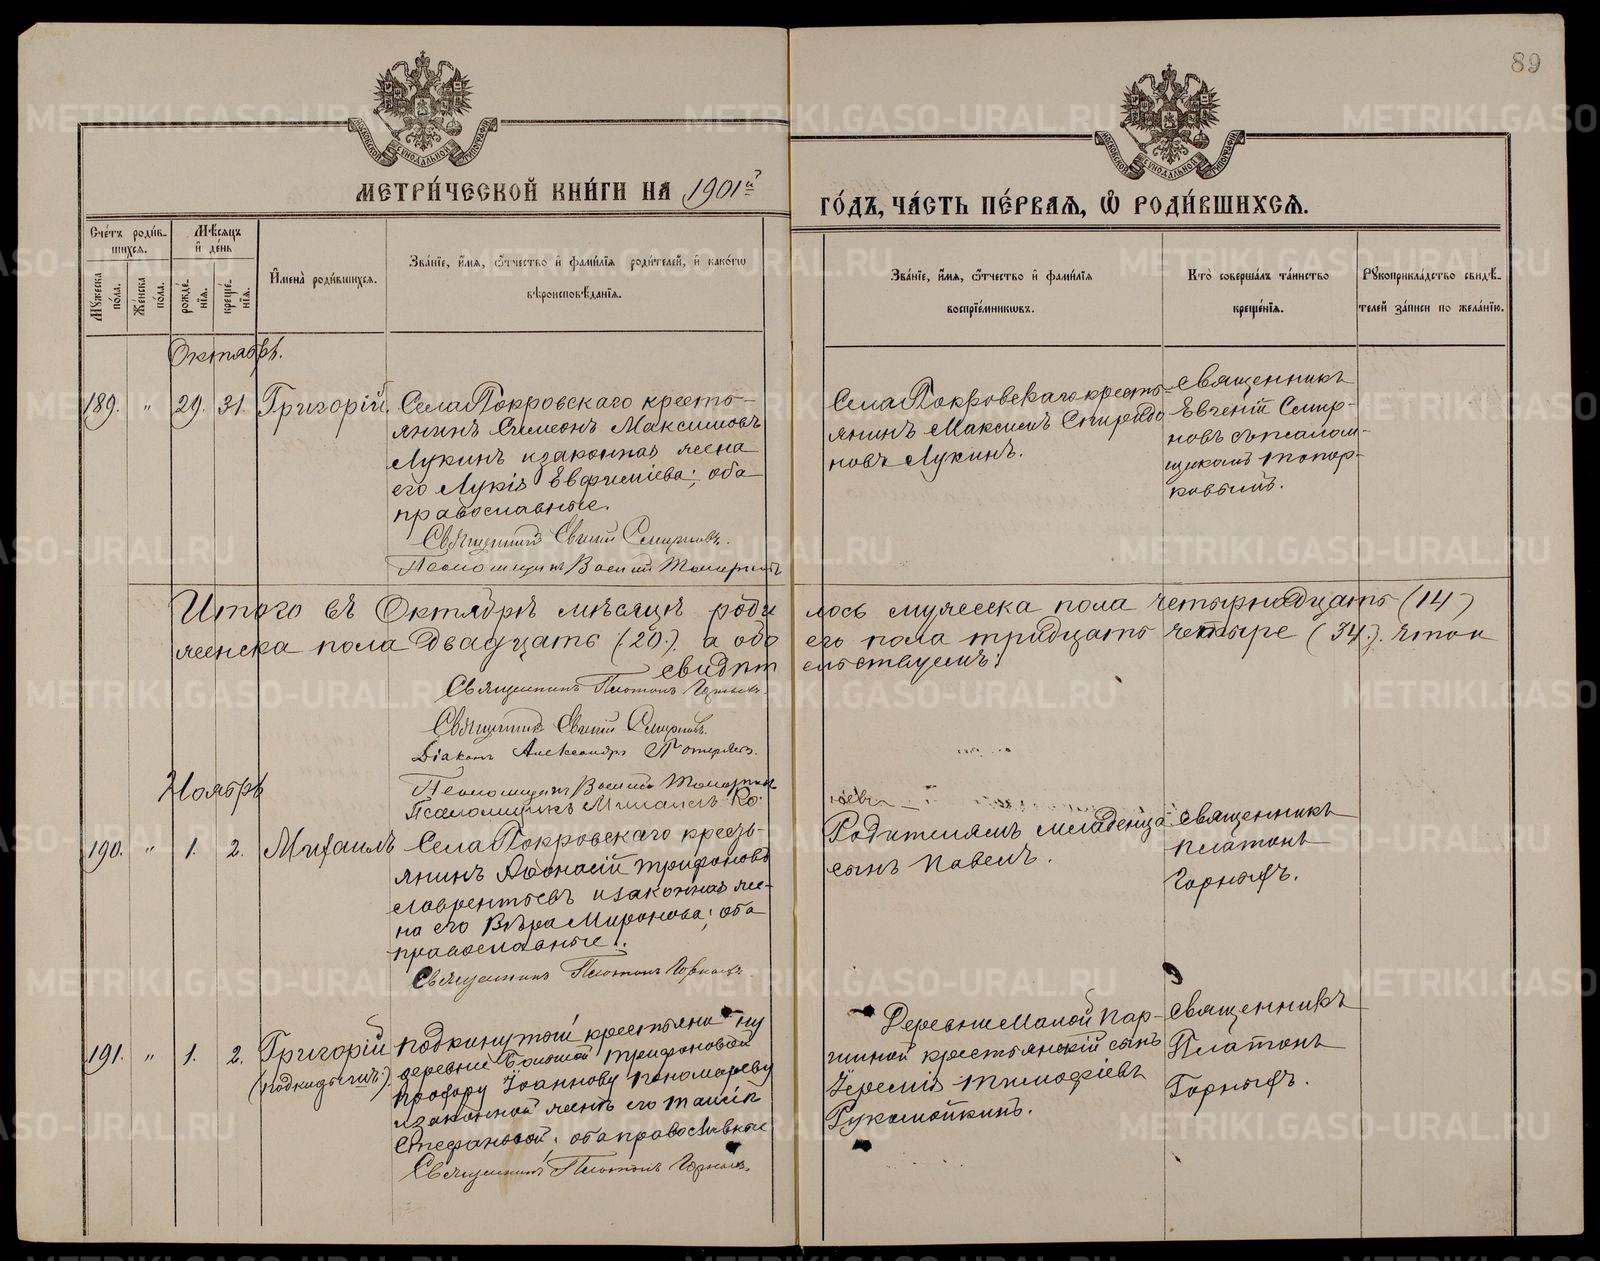 89
МОСКОВСКОЙ СУНОДАЛЬНОЙ ТИПОГРАФІИ
МОСКОВСКОЙ СУНОДАЛЬНОЙ ТИПОГРАФІИ
МЕТРИ́ЧЕСКОЙ КНИ́ГИ НА 1901й
ГО́ДЪ, ЧА́СТЬ ПЕ́РВАЯ, Ѽ РОДИ́ВШИХСЯ.
Сче́тъ роди́в-
шихся.
Мꙋжеска по́ла.
Же́нска по́ла.
Мѣ́сяцъ
и҆ де́нь
рожде́нїя.
креще́нїя.
И҆мена̀ роди́вшихся.
Зва́нїе, и҆́мя, ѻ҆́тчество и҆ фами́лїя роди́телей, и҆ како́гѡ
вѣроисповѣ́данїя.
Зва́нїе, и҆́мя, ѻ҆́тчество и҆ фами́лїя
воспрїе́мникѡвъ.
Кто̀ соверша́лъ та́инство
креще́нїя.
Рꙋкоприкла́дство свидѣ́-
телей за́писи по жела́нїю.
Октябрь.
189. " 29. 31. Григорій.
Села Покровскаго кресть-
янинъ Симеонъ Максимовъ
Лукинъ и законная жена
его Лукія Евфиміева; оба
православные.
Священникъ Евгеній Смирновъ.
Псаломщикъ Василій Топорковъ
Села Покровскаго кресть-
янинъ Максимъ Спиридо
новъ Лукинъ.
Священникъ
Евгеній Смир-
новъ съ псалом-
щикомъ Топор-
ковымъ.
Итого въ Октябрѣ мѣсяцѣ роди лось мужеска пола четырнадцать (14)
женска пола двадцать (20.) а обо его пола тридцать четыре (34.). Въ том
свидѣт ельствуемъ:
Священникъ Платонъ Горныхъ.
Священникъ Евгеній Смирновъ.
Діаконъ Александръ
Псаломщикъ Василій Топорков
Псаломщикъ Михаилъ Ко
Ноябрь
190. " 1. 2. Михаилъ
Села Покровскаго кресть-
янинъ Афонасій Трифоновъ
Лаврентьевъ и законная же-
на его Вѣра Миронова; оба
православные.
Священникъ Платонъ Горныхъ
Родителямъ младенца
сынъ Павелъ.
Священникъ
Платонъ
Горныхъ.
191. " 1. 2. Григорій
(подкидышъ.)
Подкинутый крестьяни ну
деревни Большой Трифоновой
Прохору Іоаннову Пономареву
законной женѣ его Таисіи
Стефановой; оба православные
Священникъ Платонъ Горныхъ.
Деревни Малой Пар-
шиной крестьянскій сынъ
Іеремія Тимофіевъ
Рукомойкинъ.
Священникъ
Платонъ
Горныхъ.
METRIKI.GASO-URAL.RU